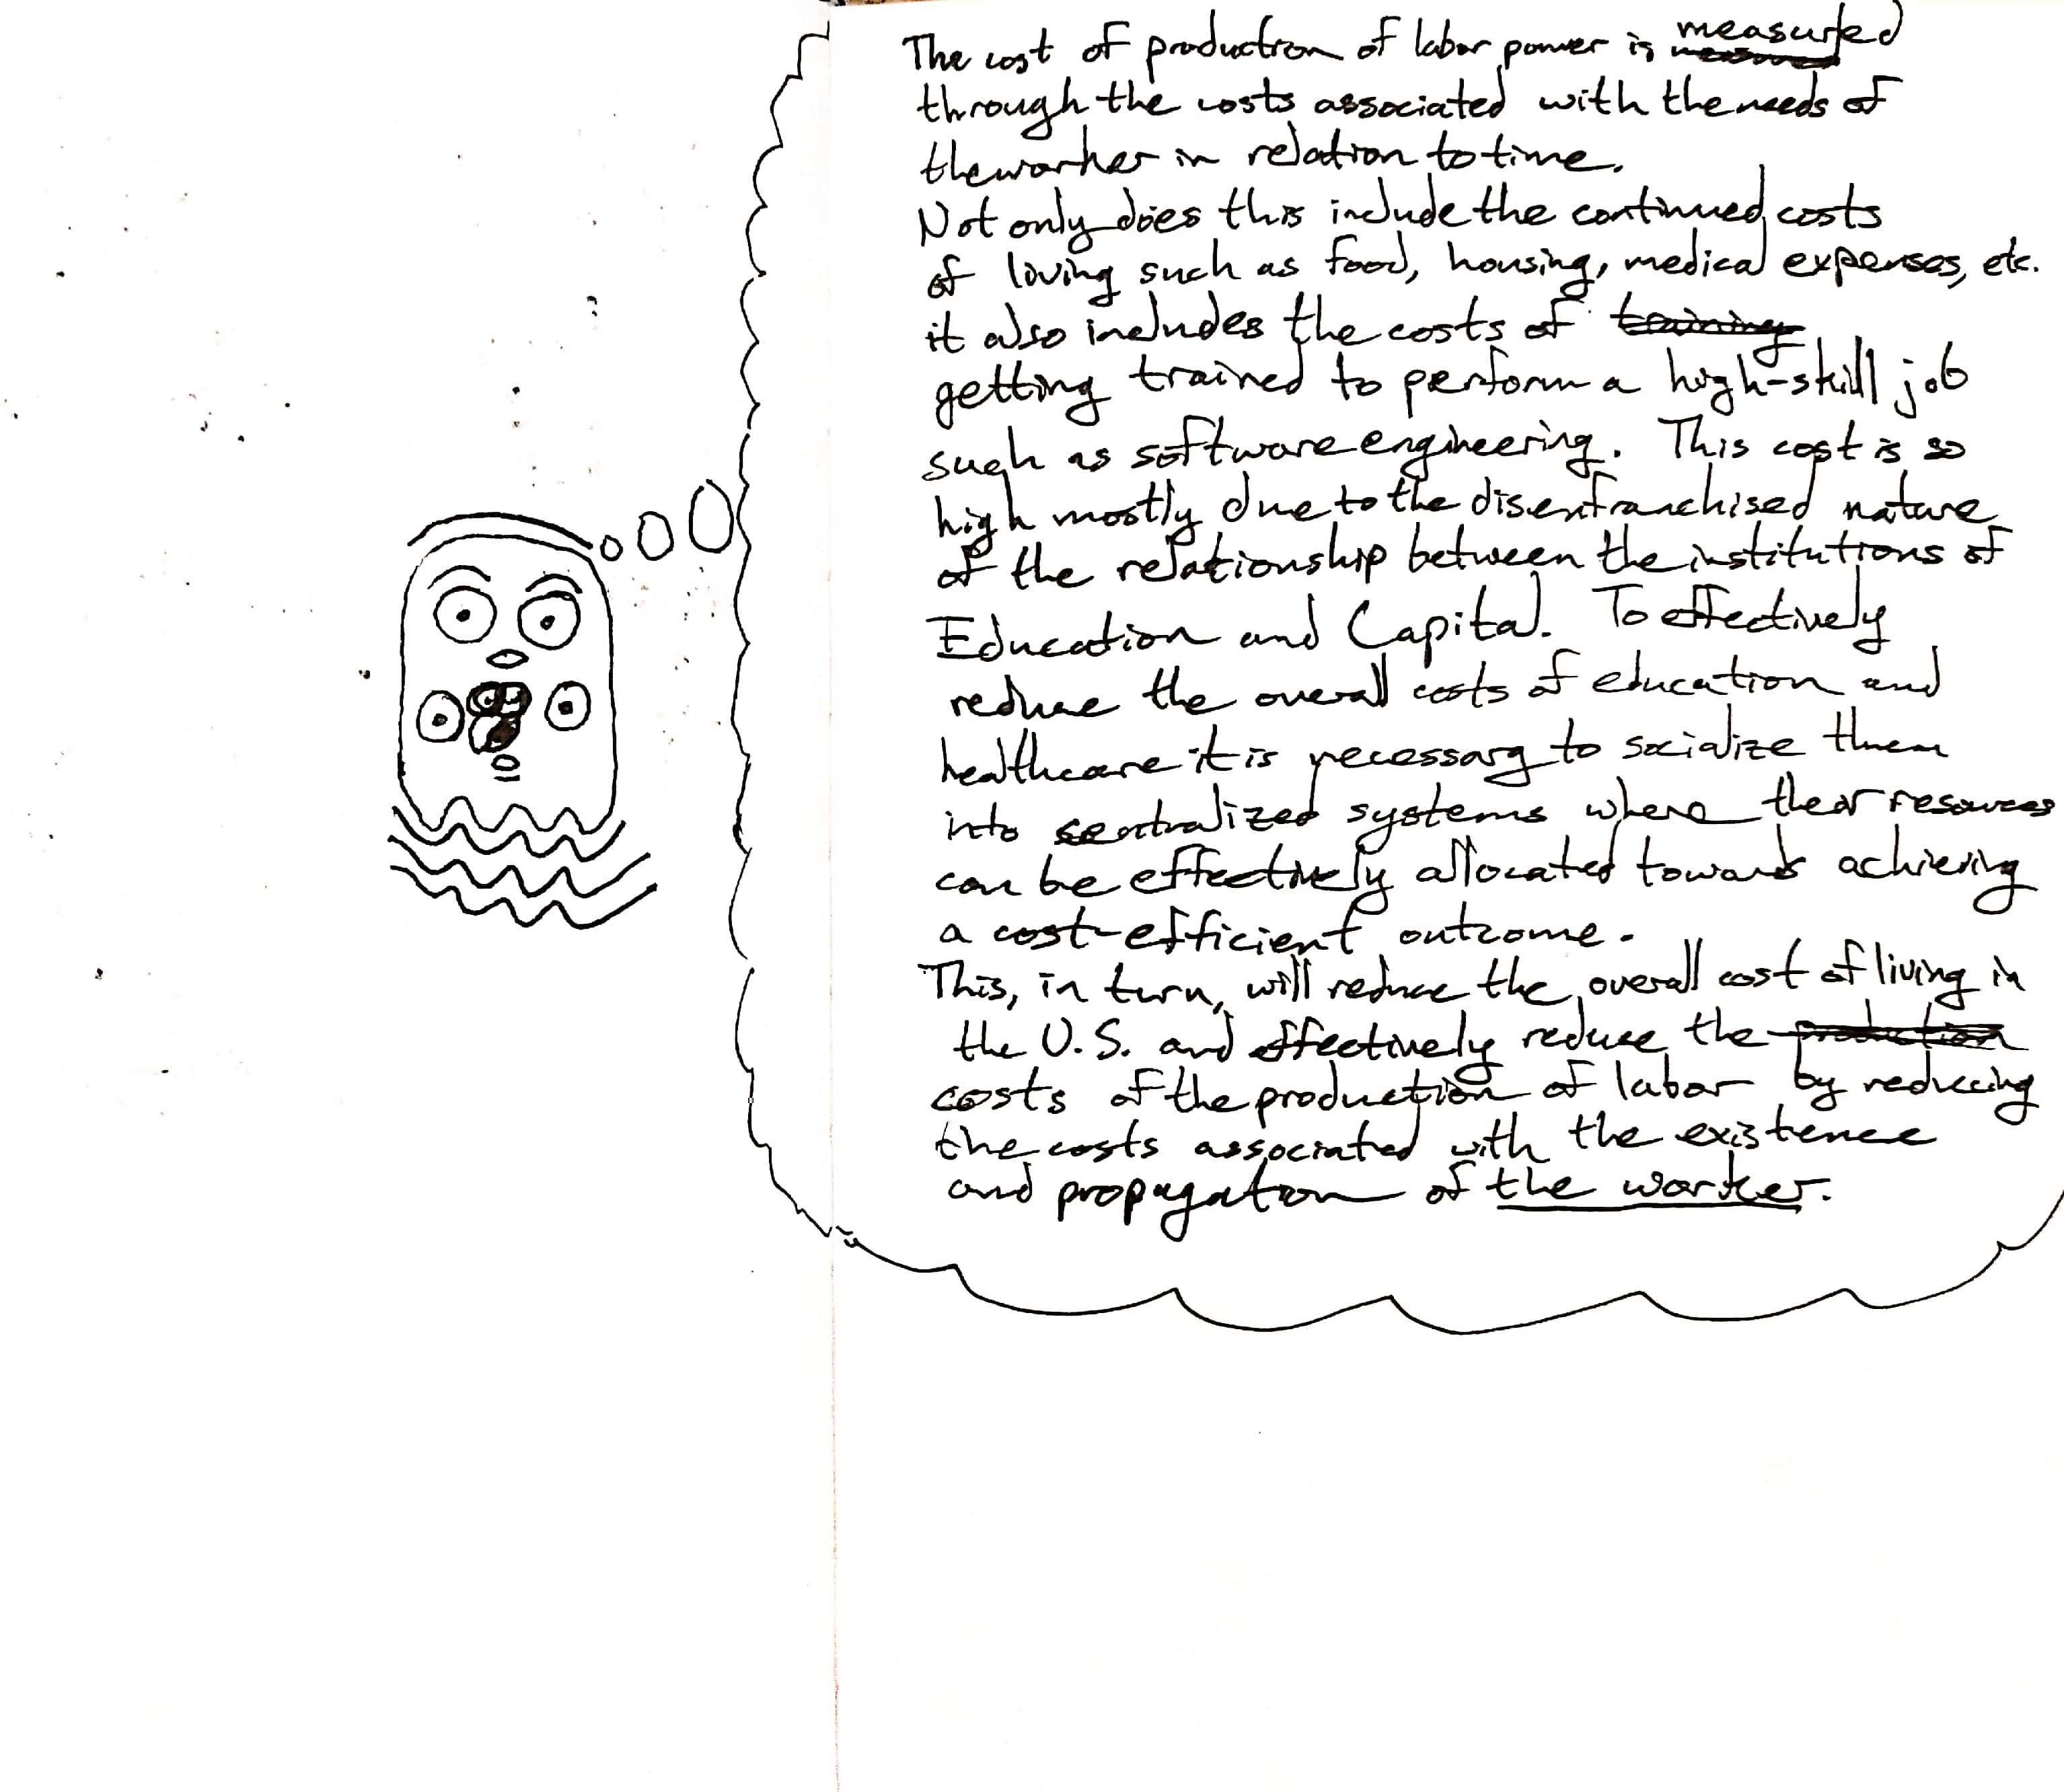 The cost of production of labor power is measured
through the costs associated with the needs of
the worker in relation to time.
Not only does this include the continued costs
of living such as food, housing, medical expenses, etc.
it also includes the costs of training
getting trained to perform a high-skill job
such as software engineering. This cost is so
high mostly due to the disenfranchised nature
of the relationship between the institutions of
Education and Capital. To effectively
reduce the overall costs of education and
healthcare it is necessary to socialize them
into sentralized systems where their resources
can be effectively allocated towards achieving
a cost-efficient outcome.
This, in turn, will reduce the overall cost of living in
the U.S. and effectively reduce the production
costs of the production of labor by reducing
the costs associated with the existence
and propagation of the worker.